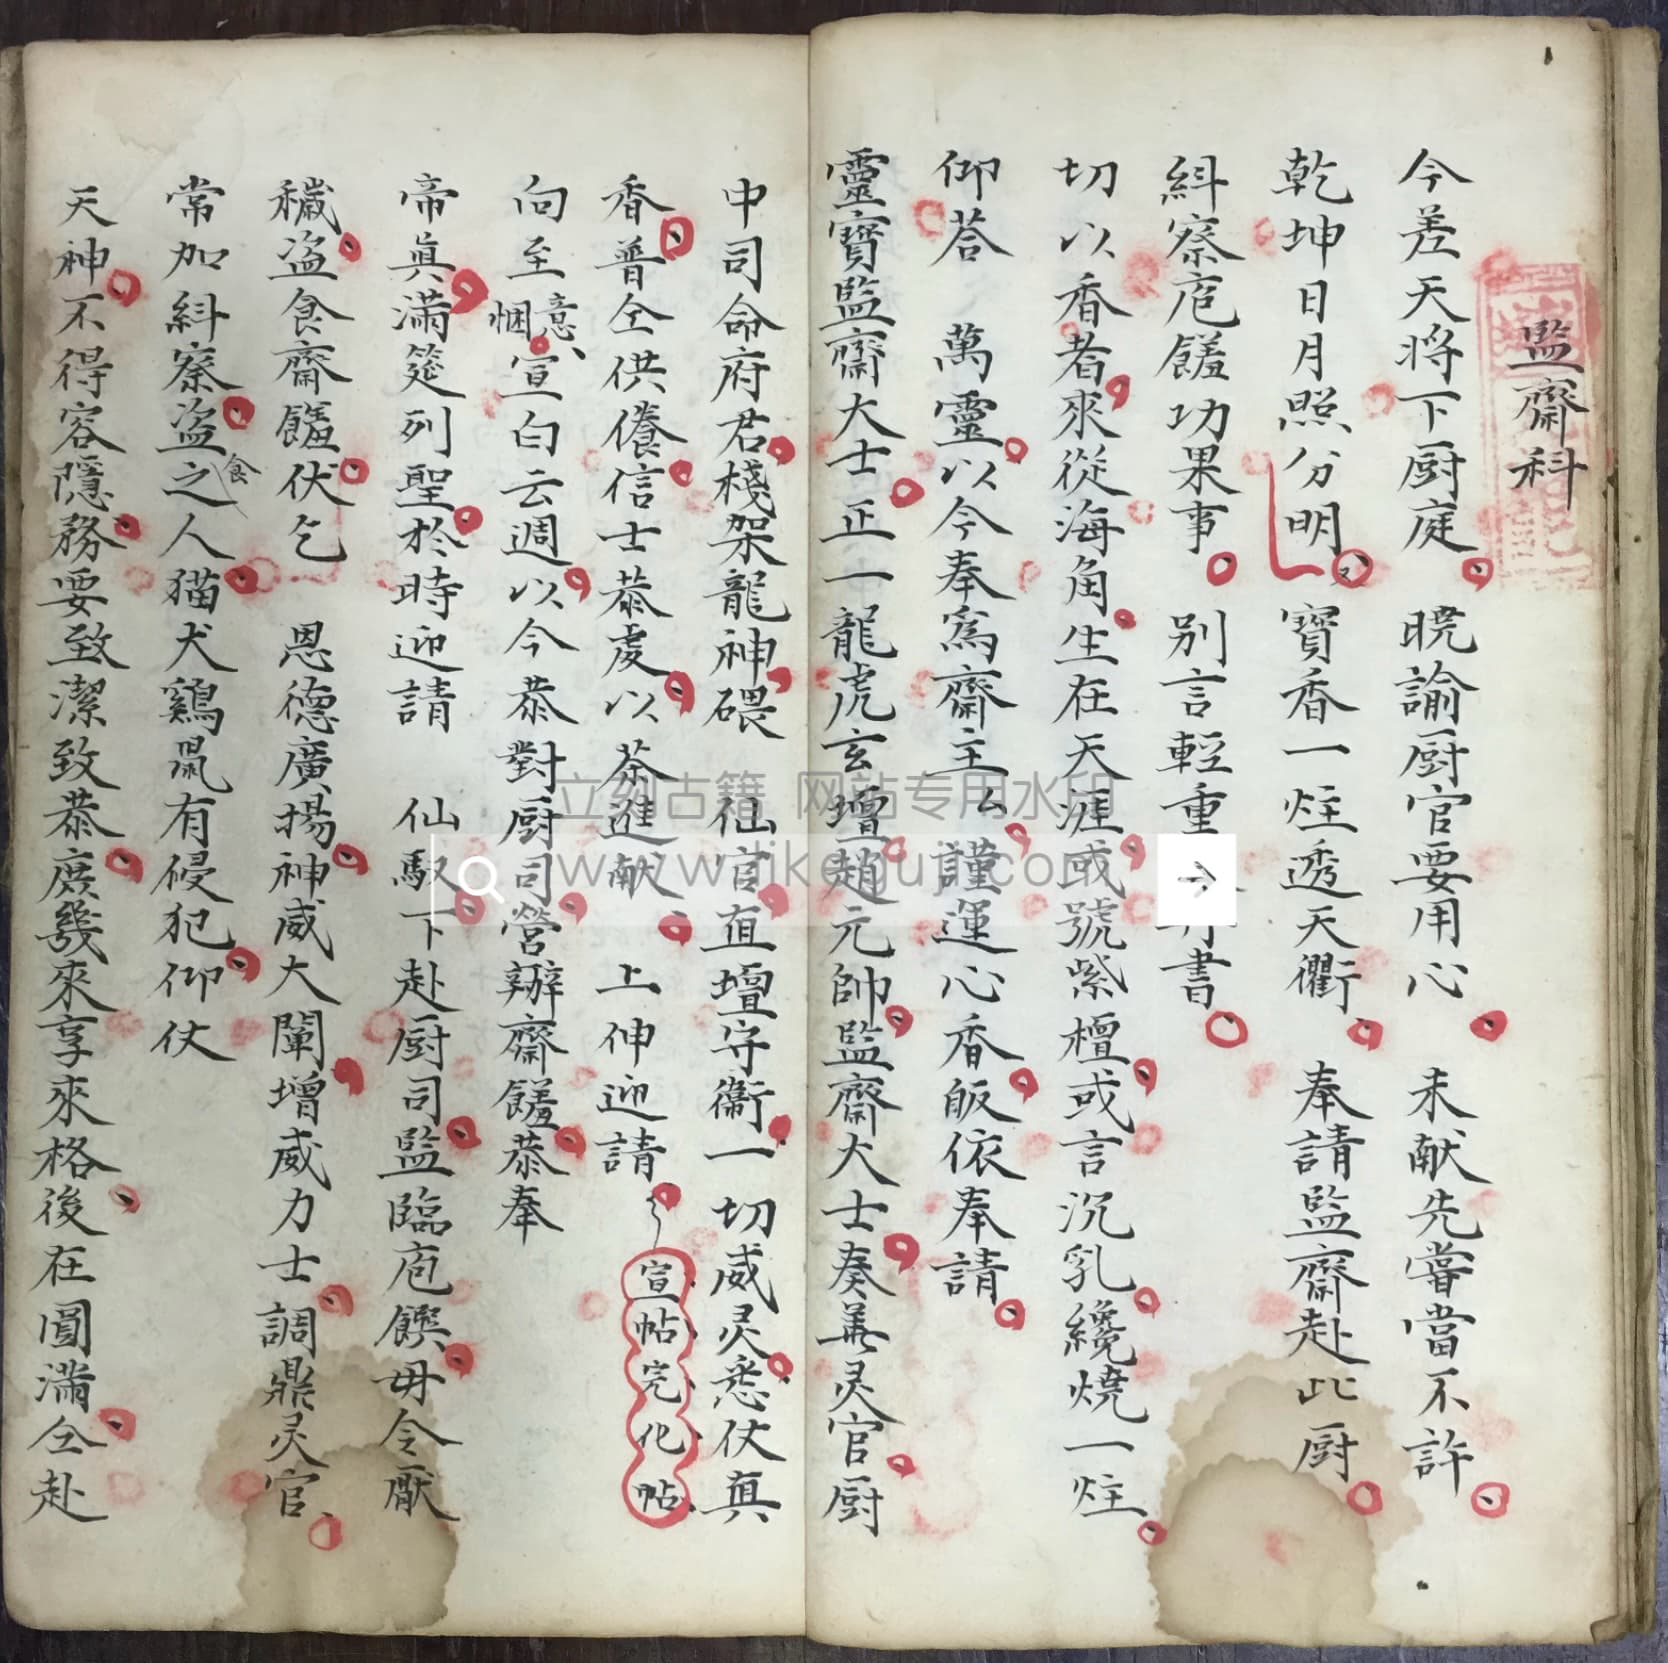 監齋科
今差天将下厨庭 曉諭厨官要用心 未献先嘗當不許
乾坤日月照分明 寳香一炷透天衢 奉請監齋赴此厨
糾察庖饈功果事 别言輕重 書
切以香者來從海角生在天涯或號紫檀或言沉乳纔燒一炷
仰荅 萬靈以今奉為齋主厶謹運心香皈依奉請
靈寳監齋大士正一龍虎玄壇趙元帥監齋大士奏善灵官厨
中司命府君棧架龍神 仙官直壇守衞一切威灵悉仗真
香普仝供養信士恭虔以茶進献 上伸迎請 宣帖完化帖
向至 意悃宣白云週以今恭對厨司營辦齋饈恭奉
帝真滿筵列聖於時迎請 仙馭下赴厨司監臨庖饌毋令厭
穢盗食齋饈伏乞 恩德廣揚神威大闡增威力士調鼎灵官
常加糾察盗食之人猫犬鷄鼠有侵犯仰仗
天神不得容隱務要致潔致恭庶幾來享來格後在圓滿仝赴
立刻古籍 网站专用水印
www.likeguji.com